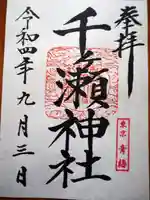 奉拝
千ヶ瀬神社
東京 青梅
令和四年九月三日